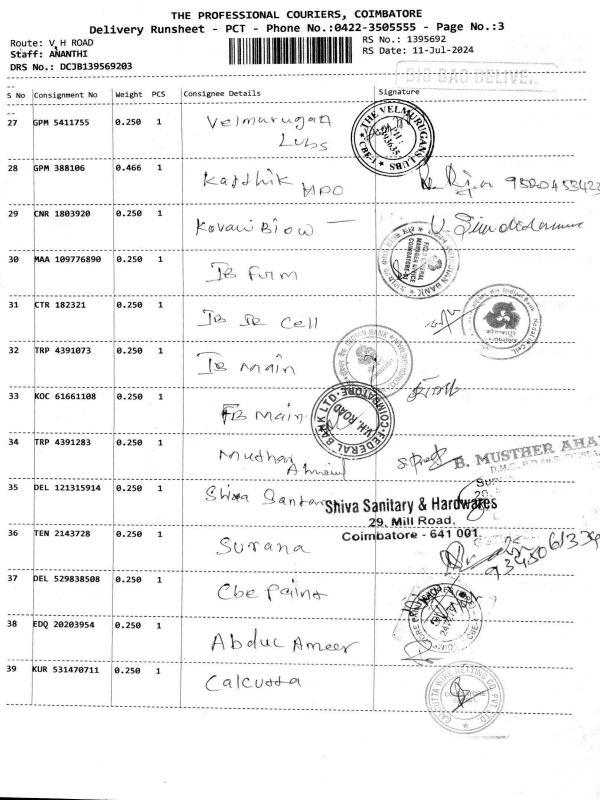 THE PROFESSIONAL COURIERS, COIMBATORE
Delivery Runsheet - PCT - Phone No.:0422-3505555 - Page No.:3
Route: V H ROAD
RS No.: 1395692
Staff: ANANTHI
RS Date: 11-Jul-2024
DRS No.: DCJB139569203
BIG BAG DELIVE
S No Consignment No Weight PCS Consignee Details Signature
27 GPM 5411755 0.250 1 Velmurugan
Lubs
THE VELMURUGAN LUBS
CBE-1
28 GPM 388106 0.466 1 Karthik
29 CNR 1803920 0.250 1 Kovai Blow
30 MAA 109776890 0.250 1 IB Firm
31 CTR 182321 0.250 1 IB Cell
32 TRP 4391073 0.250 1 IB Main
INDIAN BANK
33 KOC 61661108 0.250 1 FB Main
FEDERAL BANK LTD.
V.H. ROAD
COIMBATORE
34 TRP 4391283 0.250 1 Muthar
Ahmed
B. MUSTHER AHA
35 DEL 121315914 0.250 1 Shiva Sanitary
Shiva Sanitary & Hardwares
29, Mill Road,
Coimbatore - 641 001
36 TEN 2143728 0.250 1 Surana
37 DEL 529838508 0.250 1 Cbe Paint
38 EDQ 20203954 0.250 1 Abdul Ameer
39 KUR 531470711 0.250 1 Calcutta
CALCUTTA WIRE NETTING CO PVT. LTD